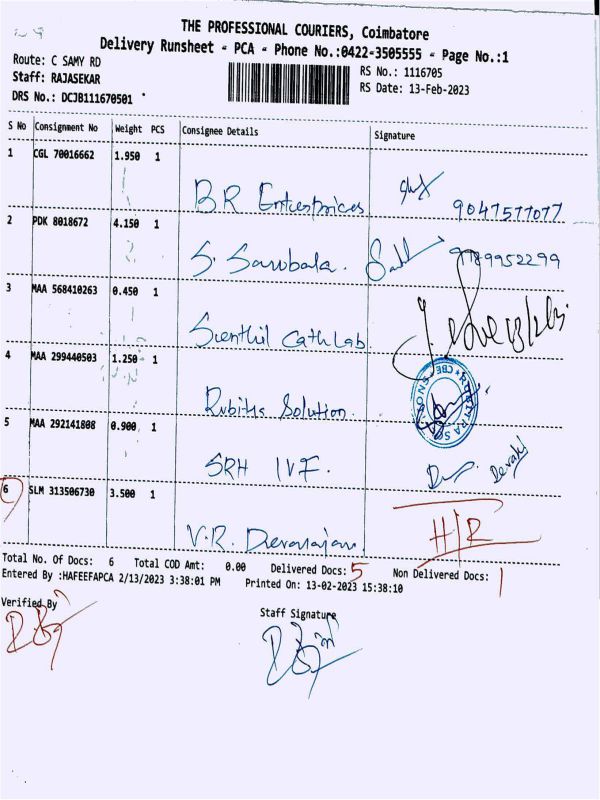 THE PROFESSIONAL COURIERS, Coimbatore
Delivery Runsheet - PCA - Phone No.:0422-3505555 - Page No.:1
Route: C SAMY RD
Staff: RAJASEKAR
DRS No.: DCJB111670501
RS No.: 1116705
RS Date: 13-Feb-2023
S No Consignment No Weight PCS Consignee Details Signature
1 CGL 70016662 1.950 1
BR Enterprices 9047577077
2 PDK 8018672 4.150 1
S. Sarubala. 9789952299
3 MAA 568410263 0.450 1
Senthil Cath Lab
4 MAA 299440503 1.250 1
Rubitis Solution.
5 MAA 292141808 0.900 1
SRH IVF. Devaki
6 SLM 313506730 3.500 1
V.R. Devarajan. H/R
Total No. Of Docs: 6 Total COD Amt: 0.00 Delivered Docs: 5 Non Delivered Docs: 1
Entered By :HAFEEFAPCA 2/13/2023 3:38:01 PM Printed On: 13-02-2023 15:38:10
Verified By
Staff Signature